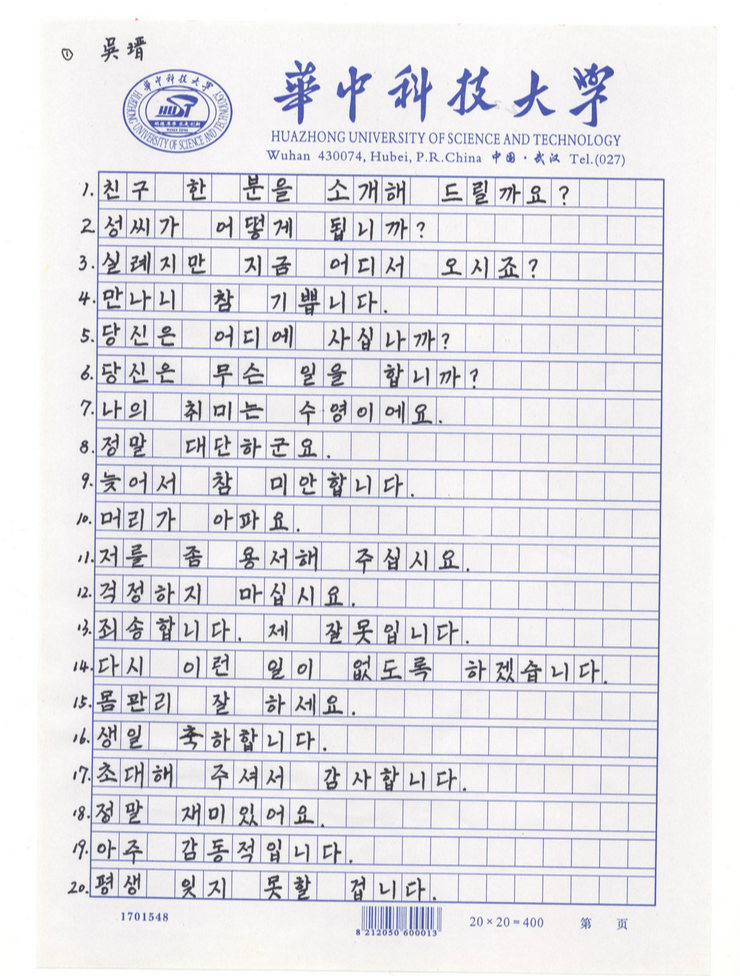 ① 吳瑨
華中科技大学
HUAZHONG UNIVERSITY OF SCIENCE AND TECHNOLOGY
Wuhan 430074, Hubei, P.R.China 中国·武汉 Tel.(027)
華中科技大学
HUAZHONG UNIVERSITY OF SCIENCE AND TECHNOLOGY
HUST
1. 친구 한 분을 소개해 드릴까요?
2 성씨가 어떻게 됩니까?
3. 실례지만 지금 어디서 오시죠?
4. 만나니 참 기쁩니다.
5. 당신은 어디에 사십나까?
6. 당신은 무슨 일을 합니까?
7. 나의 취미는 수영이에요.
8. 정말 대단하군요.
9. 늦어서 참 미안합니다.
10. 머리가 아파요.
11. 저를 좀 용서해 주십시요.
12. 걱정하지 마십시요.
13. 죄송합니다. 제 잘못입니다.
14. 다시 이런 일이 없도록 하겠습니다.
15. 몸관리 잘 하세요.
16. 생일 축하합니다.
17. 초대해 주셔서 감사합니다.
18. 정말 재미있어요.
19. 아주 감동적입니다.
20. 평생 잊지 못할 겁니다.
1701548
8 212050 600013
20×20=400 第 页